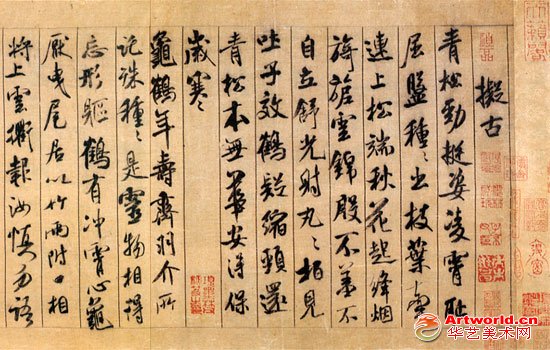 擬古
青松勁挺姿凌霄恥
屈盤種〻出枝葉牽
連上松端秋花起絳烟
旖旎雲錦殷不羞不
自立舒光射丸〻柏見
吐子效鶴疑縮頸還
青松本無華安得保
歲寒
龜鶴年壽齊羽介所
託殊種〻是靈物相得
忘形軀鶴有沖霄心龜
厭曳尾居以竹兩附口相
將上雲衢報汝慎勿語
Artworld.cn
华艺美术网